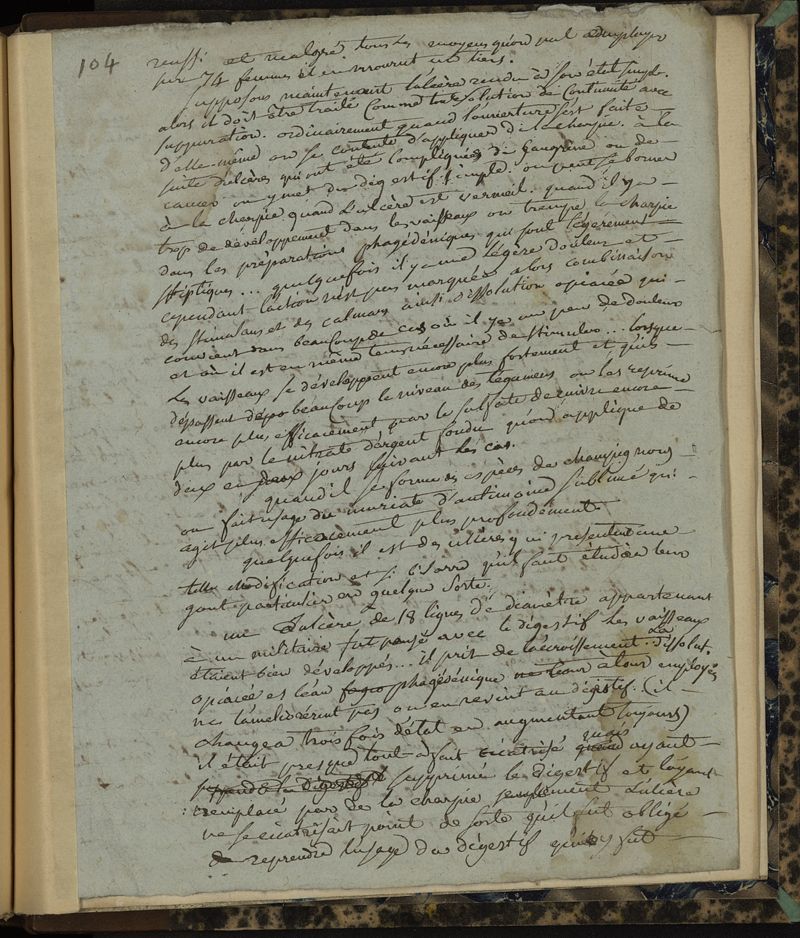 104
reussi et malgré tous les moyens qu'on put employer
sur 74 femmes il en mourut un tiers.
supposons maintenant l'ulcère rendu à son état simple.
alors il doit être traité comme toute solution de continuité avec
suppuration. ordinairement quand l'ouverture s'est faite
d'elle-même on se contente d'appliquer de la charpie. à la
suite d'ulcères qui ont été compliqués de gangrène ou de
cancer on y met du digestif simple. on peut se borner
à la charpie quand l'ulcère est vermeil. quand il y a
trop de développement dans les vaisseaux on trempe la charpie
dans les préparations phagédéniques qui sont légèrement
stiptiques... quelquefois il y a une légère douleur et
cependant l'action n'est pas marquée alors combinaison
des stimulans et des calmans ainsi dissolution opiacée qui
convient dans beaucoup de cas où il y a un peu de douleur
et où il est en même tems nécessaire de stimuler... lorsque
les vaisseaux se développent encore plus fortement et qu'ils
dépassent de beaucoup le niveau des tégumens on les reprime
encore plus efficacement par le sulfate de cuivre encore
plus par le nitrate d'argent fondu qu'on applique de
deux en deux jours suivant les cas.
quand il se forme des espèces de champignons
on fait usage du muriate d'antimoine sublimé qui
agit plus efficacement plus profondément
quelquefois il est des ulcères qui présentent une
telle modification et si bisarre qu'il faut étudier leur
gout particulier en quelque sorte.
une ulcère de 18 lignes de diamètre appartenant
à un militaire fut pansé avec le digestif les vaisseaux
étaient bien développés... il prit de l'accroissement. La dissolut.
opiacée et l'eau phagédénique alors employés
ne l'améliorèrent pas on en revint au digestif. (il
changea trois fois d'état en augmentant toujours)
il était presque tout-à-fait cicatrisé mais ayant
supprimé le digestif et l'ayant
remplacé par de la charpie simplement l'ulcère
ne se cicatrisait point de sorte qu'il fut obligé
de reprendre l'usage du digestif